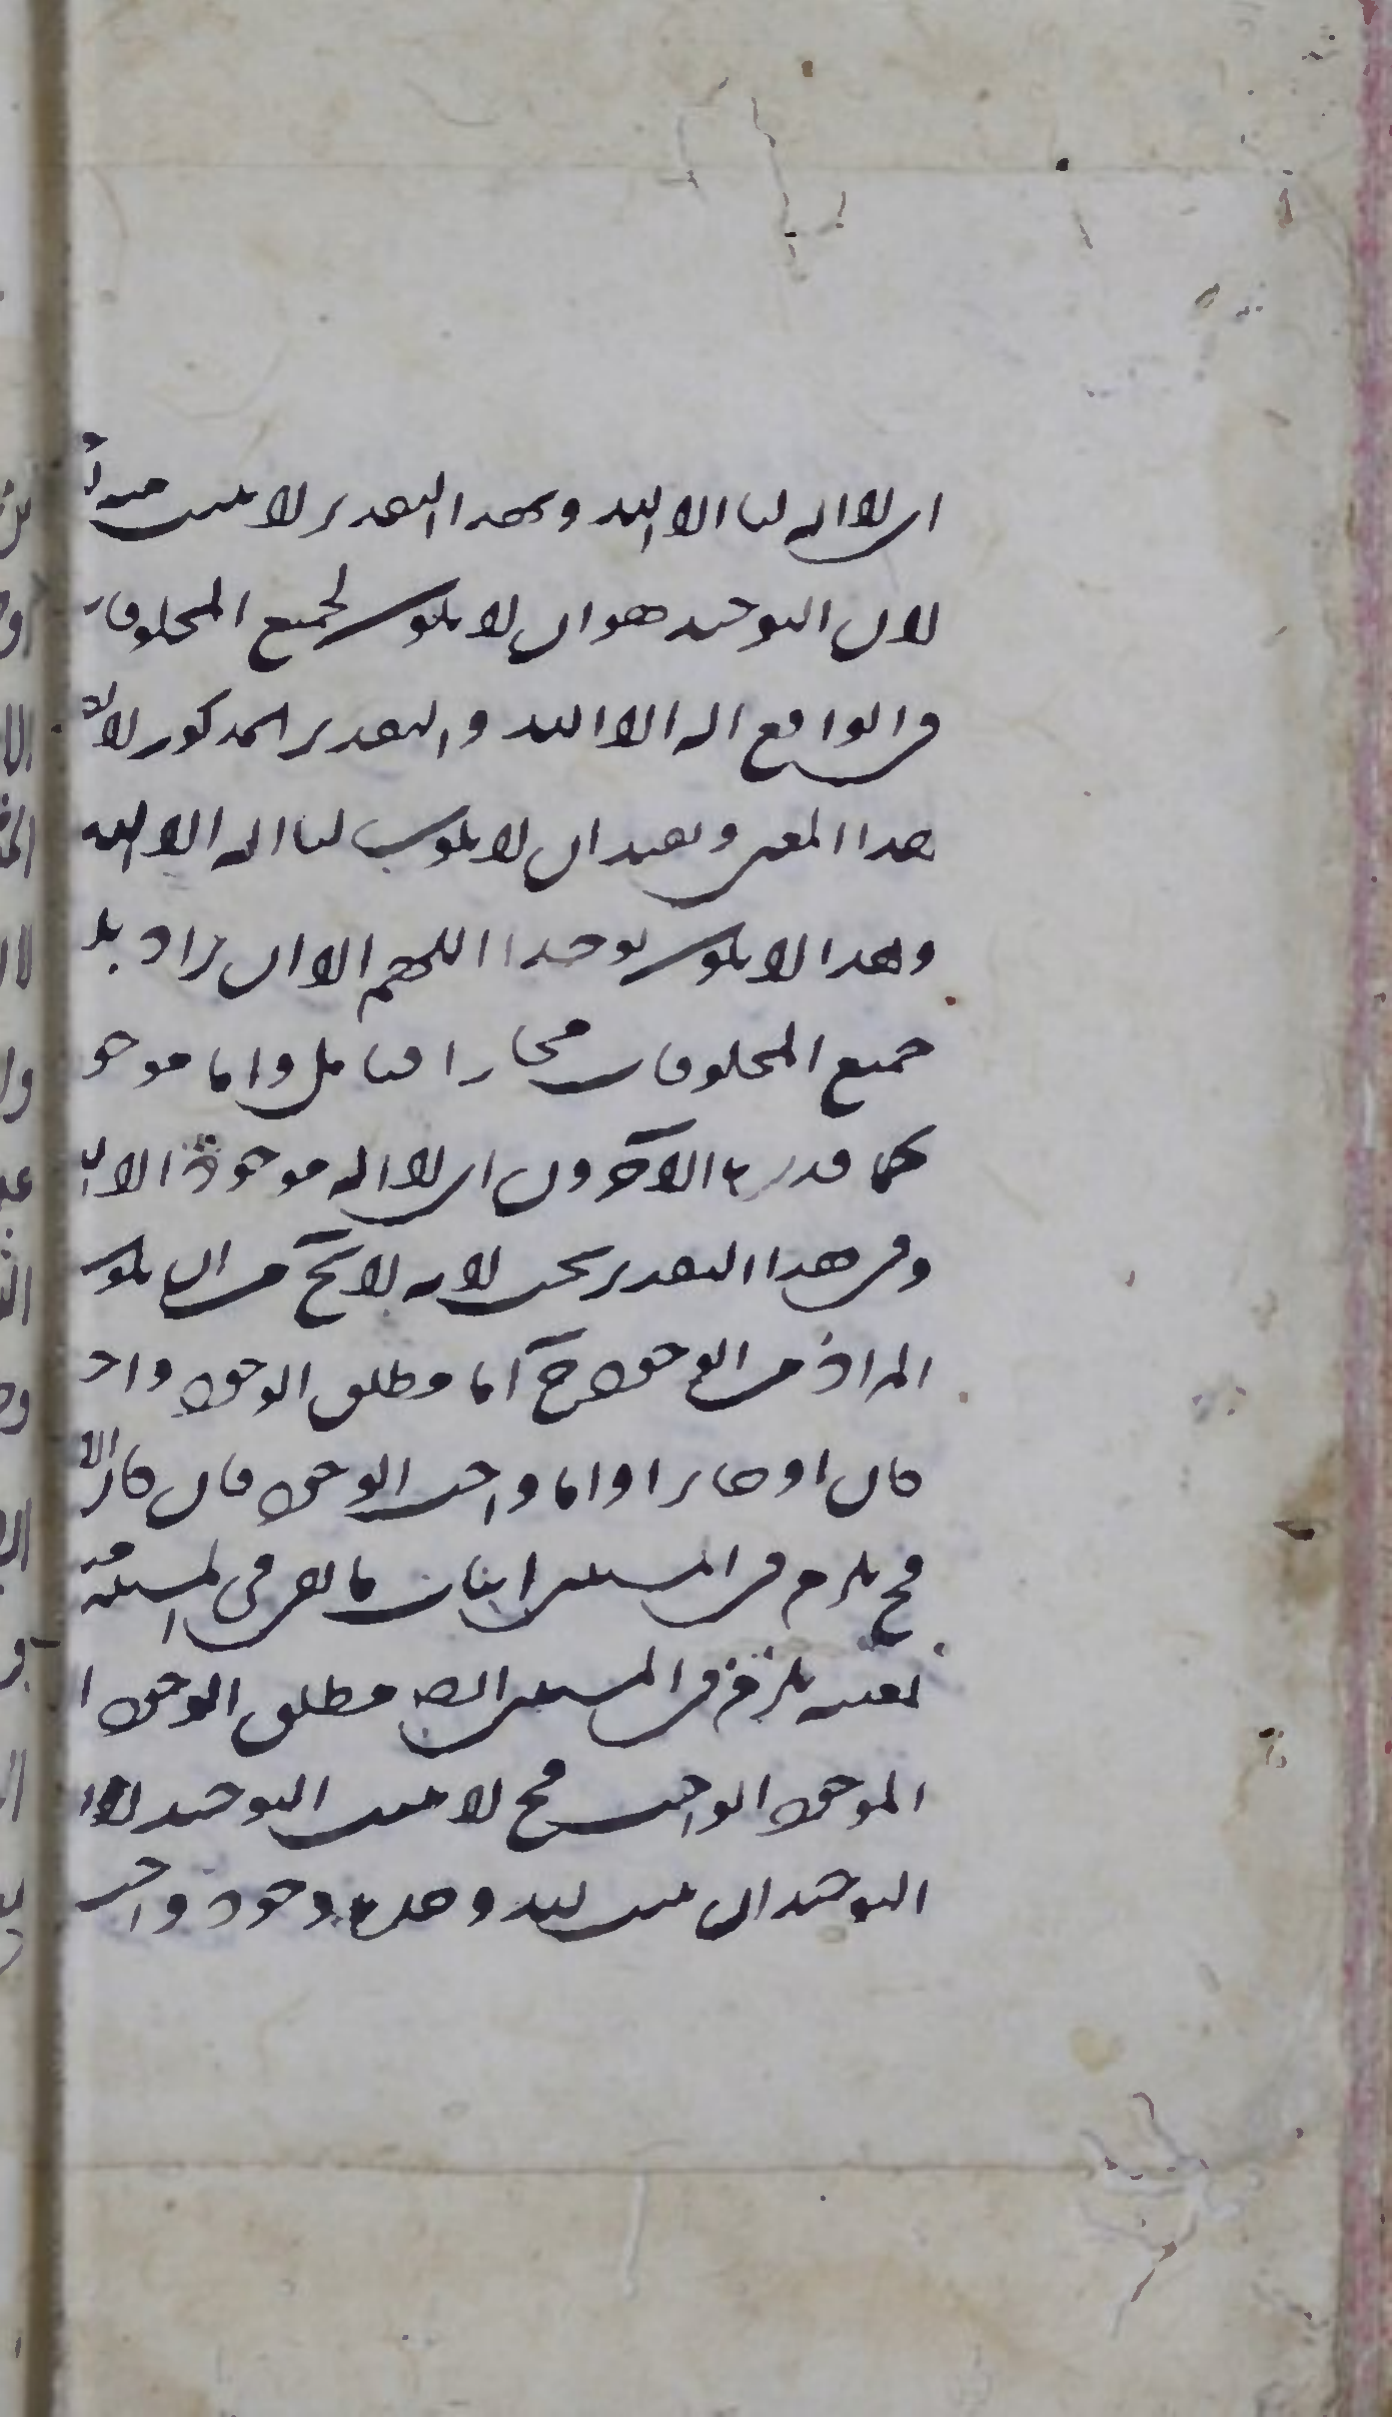 اى لا اله لنا الا الله وبهذا التقدير لا يثبت
لان التوحيد هو ان لا يكون لجميع المخلوقات
فى الواقع اله الا الله والتقدير المذكور لا
هذا المعنى ويفيد ان لا يكون لنا اله الا الله
وهذا لا يكون توحيدا اللهم الا ان يراد بلنا
جميع المخلوقات مجازا فتامل واما موجود
كما قدره الآخرون اى لا اله موجود الا الله
وفى هذا التقدير بحث لانه لا يخ من ان يكون
المراد من الوجود ح اما مطلق الوجود واجبا
كان او جايزا واما واجب الوجود فان كان الاول
فح يلزم فى المستثنى اثبات ما نفى فى المستثنى منه
بعينه يلزم فى المستثنى ايضا مطلق الوجود لا
الموجود الواجب فح لا يثبت التوحيد لان
التوحيد ان يثبت لله وحده وجود واجب